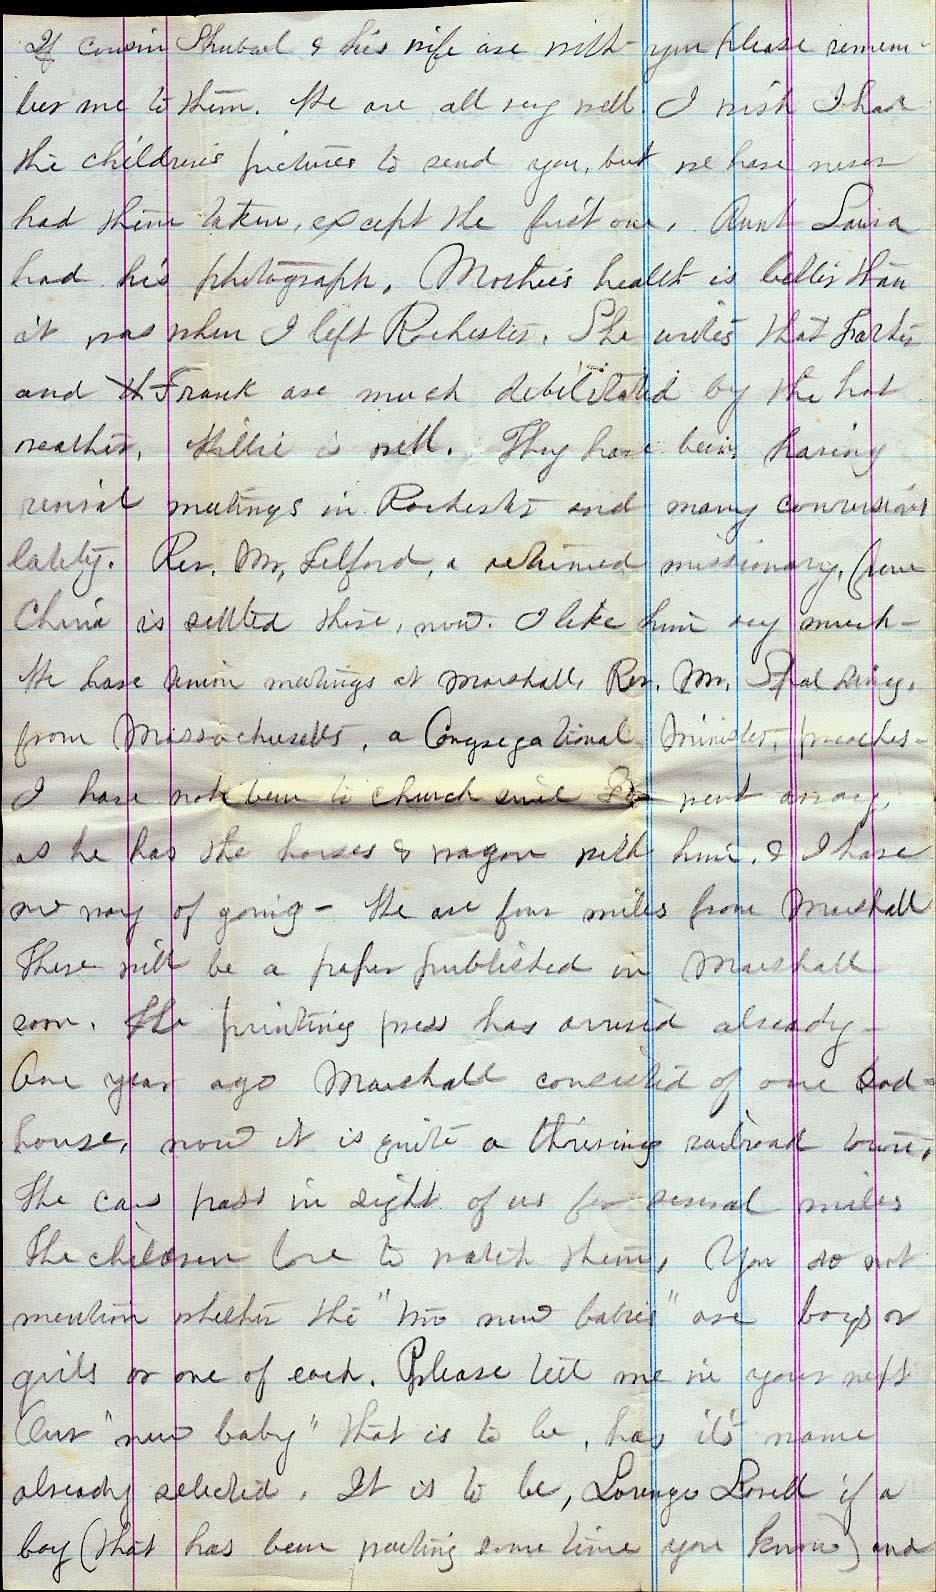 If cousin Shubael & his wife are with you please remem-
ber me to them. We are all very well. I wish I had
the children's pictures to send you, but we have never
had them taken, except the first one. Aunt Louisa
had his photograph. Mother's health is better than
it was when I left Rochester. She writes that Father
and Frank are much debilitated by the hot
weather. Willie is well. They have been having
revival meetings in Rochester and many conversions
lately. Rev. Mr. Lilford, a returned missionary, from
China is settled there, now. I like him very much -
We have Union meetings at Marshall. Rev. Mr. Spalding,
from Massachusetts, a Congregational Minister, preaches -
I have not been to church since went away,
as he has the horses & wagon with him, & I have
no way of going - We are four miles from Marshall
There will be a paper published in Marshall
soon. The printing press has arrived already -
One year ago Marshall consisted of one Sod-
house, now it is quite a thriving railroad town.
The cars pass in sight of us for several miles
The children love to watch them. You do not
mention whether the "two new babies" are boys or
girls or one of each. Please tell me in your next
Our "new baby" that is to be, has it's name
already selected. It is to be, Lorenzo Lovell if a
boy (that has been waiting some time you know) and